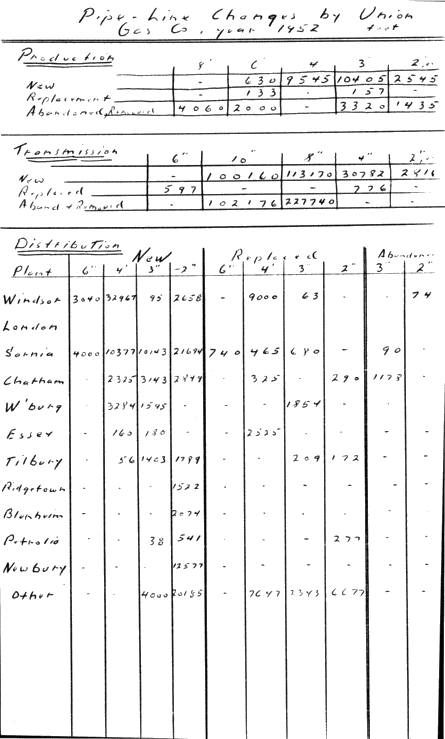 Pipe-Line Changes by Union
Gas Co, year 1952 feet
Production
8" 6" 4 3" 2"
New - 630 9545 10405 2545
Replacement - 133 - 157 -
Abandoned, Removed 4060 2000 - 3320 1435
Transmission
6" 10" 8" 4" 2"
New - 100160 113170 30782 2816
Replaced 597 - - 776 -
Aband & Removed - 102176 227740 - -
Distribution
New Replaced Abandoned
Plant 6" 4" 3" -2" 6" 4" 3" 2" 3" 2"
Windsor 3040 32967 95 2658 - 9000 63 . . 74
London
Sarnia 4000 10377 10143 21694 740 465 680 - 90
Chatham - 2325 3143 2844 - 325 . 290 1173 -
W'burg - 3284 1545 - - - 1854 - - -
Essex - 160 180 - - 2525 - - - -
Tilbury - 56 1403 1789 - - 209 172 - -
Ridgetown - - - 1522 - - - - - -
Blenheim - - - 2074 - - - - - -
Petrolia - - 38 541 - - - 277 - -
Newbury - - - 12577 - - - - - -
Other - - 4000 20185 - 7647 2343 6677 - -